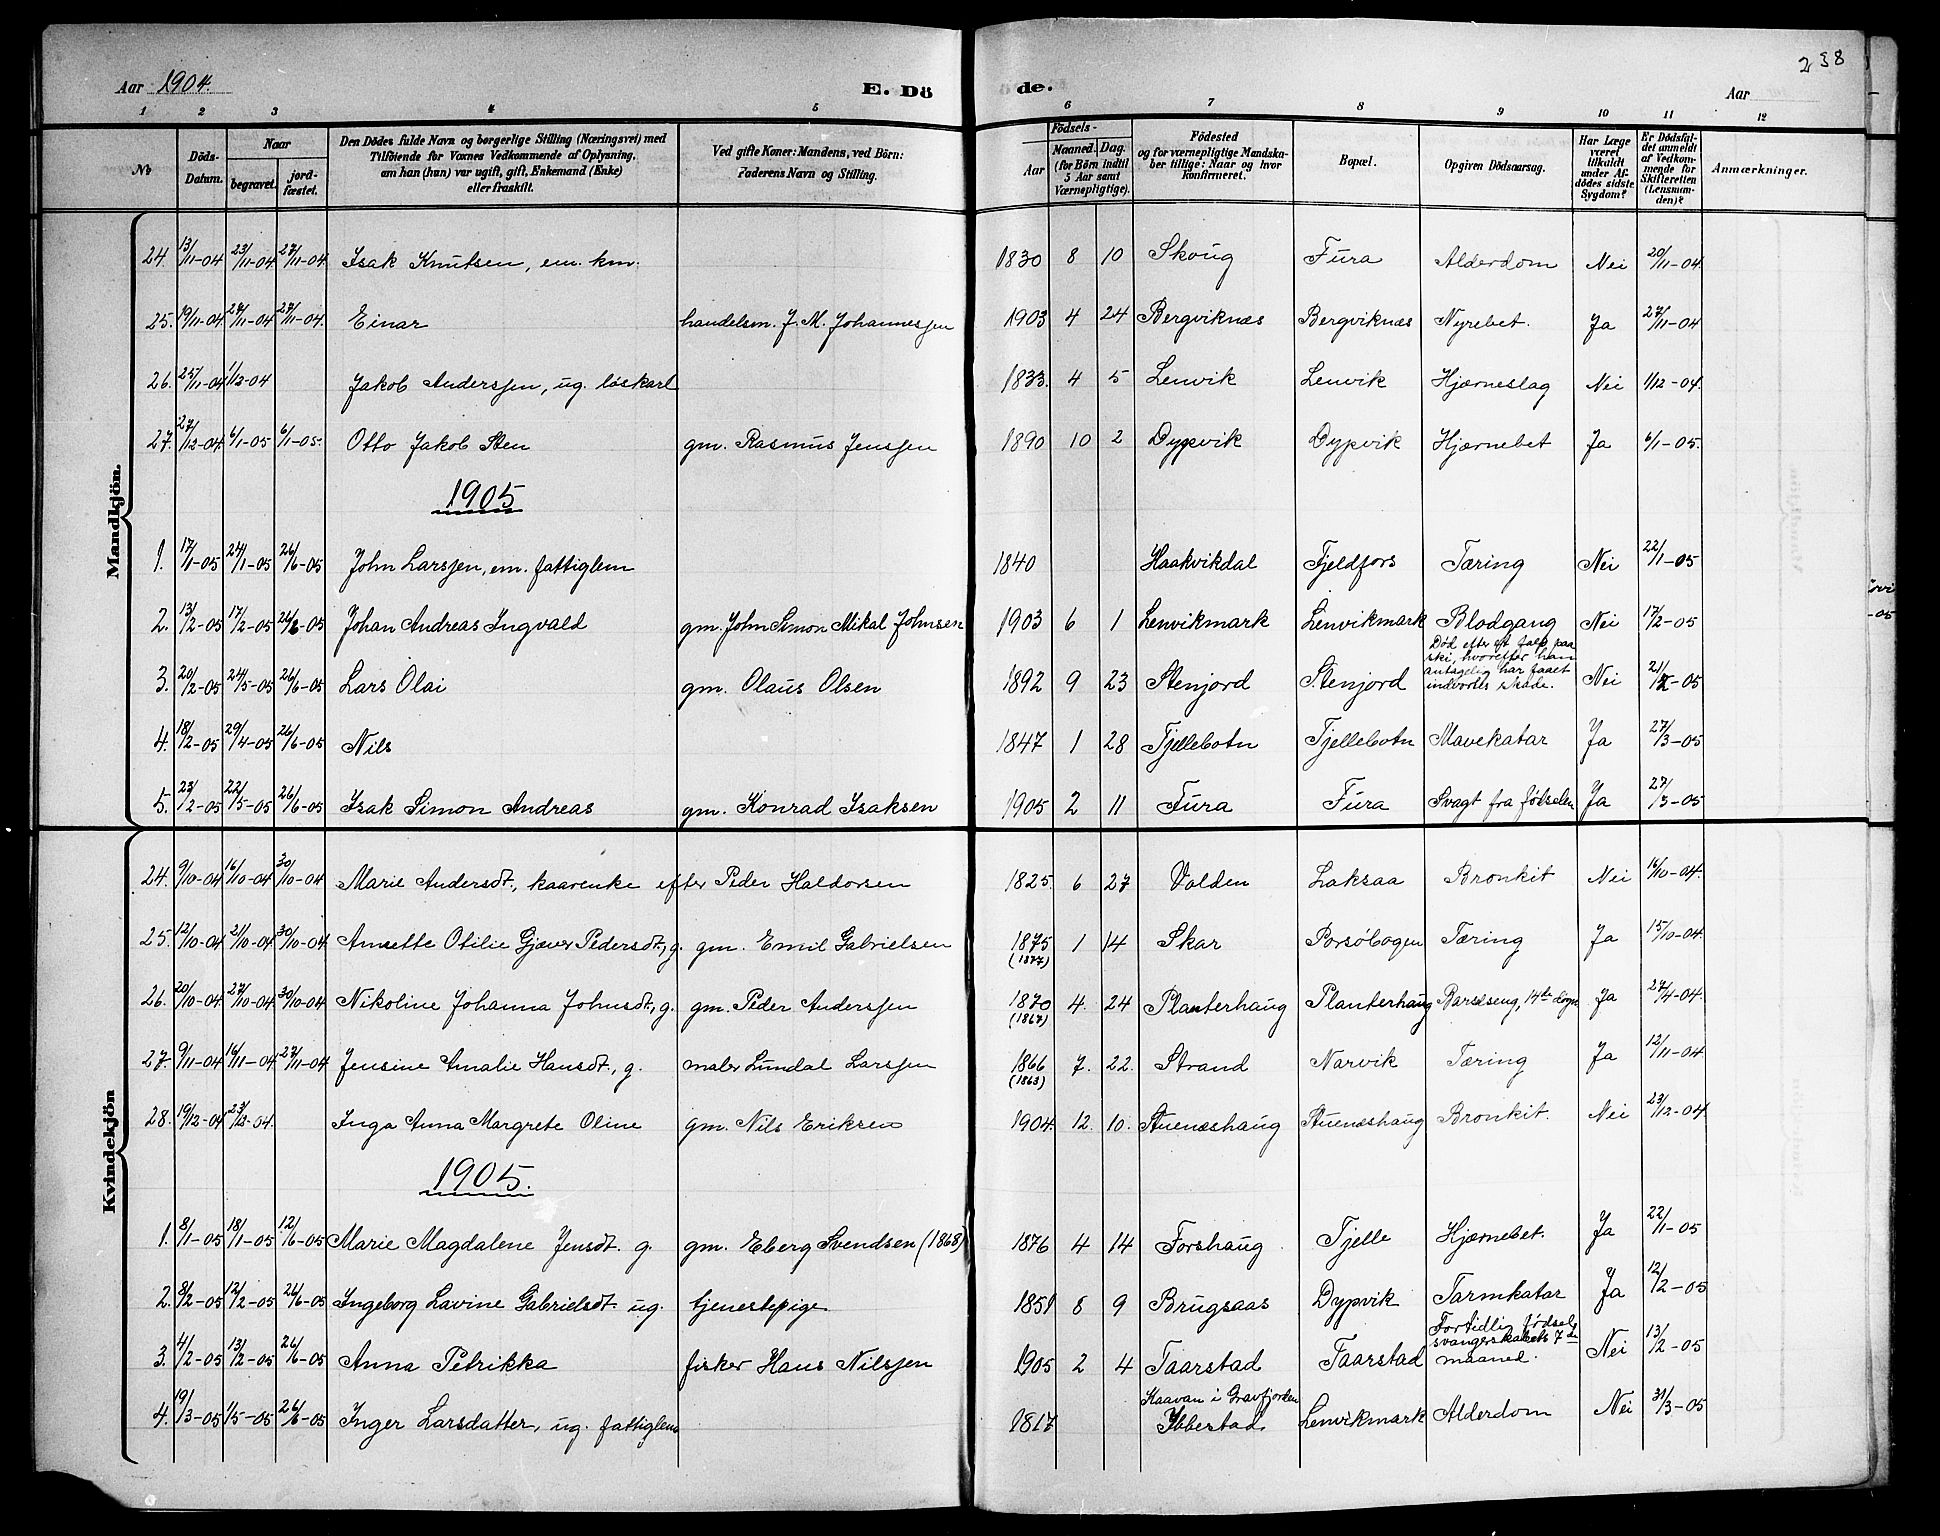 Aar 1904. E. Dö de. Aar 238
1 2 3 4 5 6 7 8 9 10 11 12
No Döds-Datum. Naar begravet. jord-fæstet. Den Dödes fulde Navn og borgerlige Stilling (Næringsvei) med Tilföiende for Voxnes Vedkommende af Oplysning, om han (hun) var ugift, gift, Enkemand (Enke) eller fraskilt. Ved gifte Koner: Mandens, ved Börn: Faderens Navn og Stilling. Födsels- Aar Maaned. Dag. (for Börn indtil 5 Aar samt Værnepligtige). Födested og for værnepligtige Mandska-ber tillige: Naar og hvor konfirmeret. Bopæl. Opgiven Dödsaarsag. Har Læge været tilkaldt under Af-dödes sidste Sygdom? Er Dödsfal-det anmeldt af Vedkom-mende for Skifteretten (Lensman-den)? Anmærkninger.
Mandkjön.
24. 13/11-04 23/11-04 27/11-04 Isak Knutsen, em. km. 1830 8 10 Skoug Fura Alderdom Nei 20/11-04.
25. 19/11-04 27/11-04 27/11-04. Einar handelsm. J. M. Johannesjen 1903 4 24 Bergviknæs Bergviknæs Nyrebet. Ja 27/11-04
26. 25/11-04 1/12-04 Jakob Andersjen, ug. löskarl 1833. 4 5 Lenvik Lenvik Hjærneslag Nei 1/12-04.
27. 27/12-04. 6/1-05 6/1-05- Otto Jakob Sten gm. Rasmus Jensjen 1890 10 2 Dypvik Dypvik Hjærnebet Ja 6/1-05.
1905
1. 17/1-05 24/1-05 26/6-05 John Larsjen, em. fattiglem 1840 Haakvikdal Fjeldfors Tæring Nei 22/1-05
2. 13/2-05 17/2-05 26/6-05 Johan Andreas Ingvald gm. John Simon Mikal Johnsen 1903 6 1 Lenvikmark Lenvikmark Blodgang Nei 17/2-05
3. 20/2-05 24/5-05 26/6-05 Lars Olai gm. Olaus Olsen 1892 9 23 Stenjord Stenjord Död efter et fald paa ski, hvorefter han antagelig har faaet indvortes skade. Nei 21/2-05
4. 18/2-05 29/4-05 26/6-05 Nils 1847 1 28 Tjellebotn Tjellebotn Mavekatar Ja 27/3-05
5. 23/2-05 22/5-05 26/6-05 Isak Simon Andreas gm. Konrad Isaksen 1905 2 11 Fura Fura Svagt fra födselen Ja 27/3-05
Kvindekjön
24. 9/10-04 16/10-04 30/10-04 Marie Andersdt., kaarenke efter Peder Haldorsen 1825. 6 27 Volden Laksaa Bronkit Nei 16/10-04.
25. 12/10-04 21/10-04 30/10-04 Annette Otilie Gjæver Pedersdt., g. gm. Emil Gabrielsen 1875 (1877) 1 14 Skar Porsöbogen Tæring Ja 15/10-04.
26. 20/10-04 27/10-04 30/10-04 Nikoline Johanna Johnsdt., g. gm. Peder Andersjen 1870 (1867) 4. 24 Planterhaug Planterhaug Barselseng, 14de dögn Ja 27/4-04.
27. 9/11-04 16/11-04 27/11-04 Jensine Amalie Hansdt., g. maler Lundal Larsjen 1866 (1863) 7. 22. Strand Narvik Tæring Ja 12/11-04
28. 19/12-04 23/12-04. Inga Anna Margrete Oline gm. Nils Eriksen 1904. 12. 10. Stuenæshaug Stuenæshaug Bronkit. Nei 23/12-04
1905.
1. 8/1-05 18/1-05 12/6-05 Marie Magdalene Jensdt. g. gm. Eberg Svendsen (1868) 1876 4 14 Forshaug Tjelle Hjærnebet. Ja 22/1-05
2. 8/2-05 12/2-05 26/6-05 Ingeborg Lavine Gabrielsdt. ug. tjenestepige 1851 8 9 Brugsaas Dypvik Tarmkatar Ja 12/2-05
3. 4/2-05 13/2-05 26/6-05 Anna Petrikka fisker Hans Nilsjen 1905 2 4 Taarstad Taarstad For tidlig födsel svangerskabets 7de maaned. Nei 13/2-05
4. 19/3-05 1/5-05 26/6-05 Inger Larsdatter, ug. fattiglem 1817 Kaavan i Gravfjorden Ibbestad Lenvikmark Alderdom Nei 31/3-05